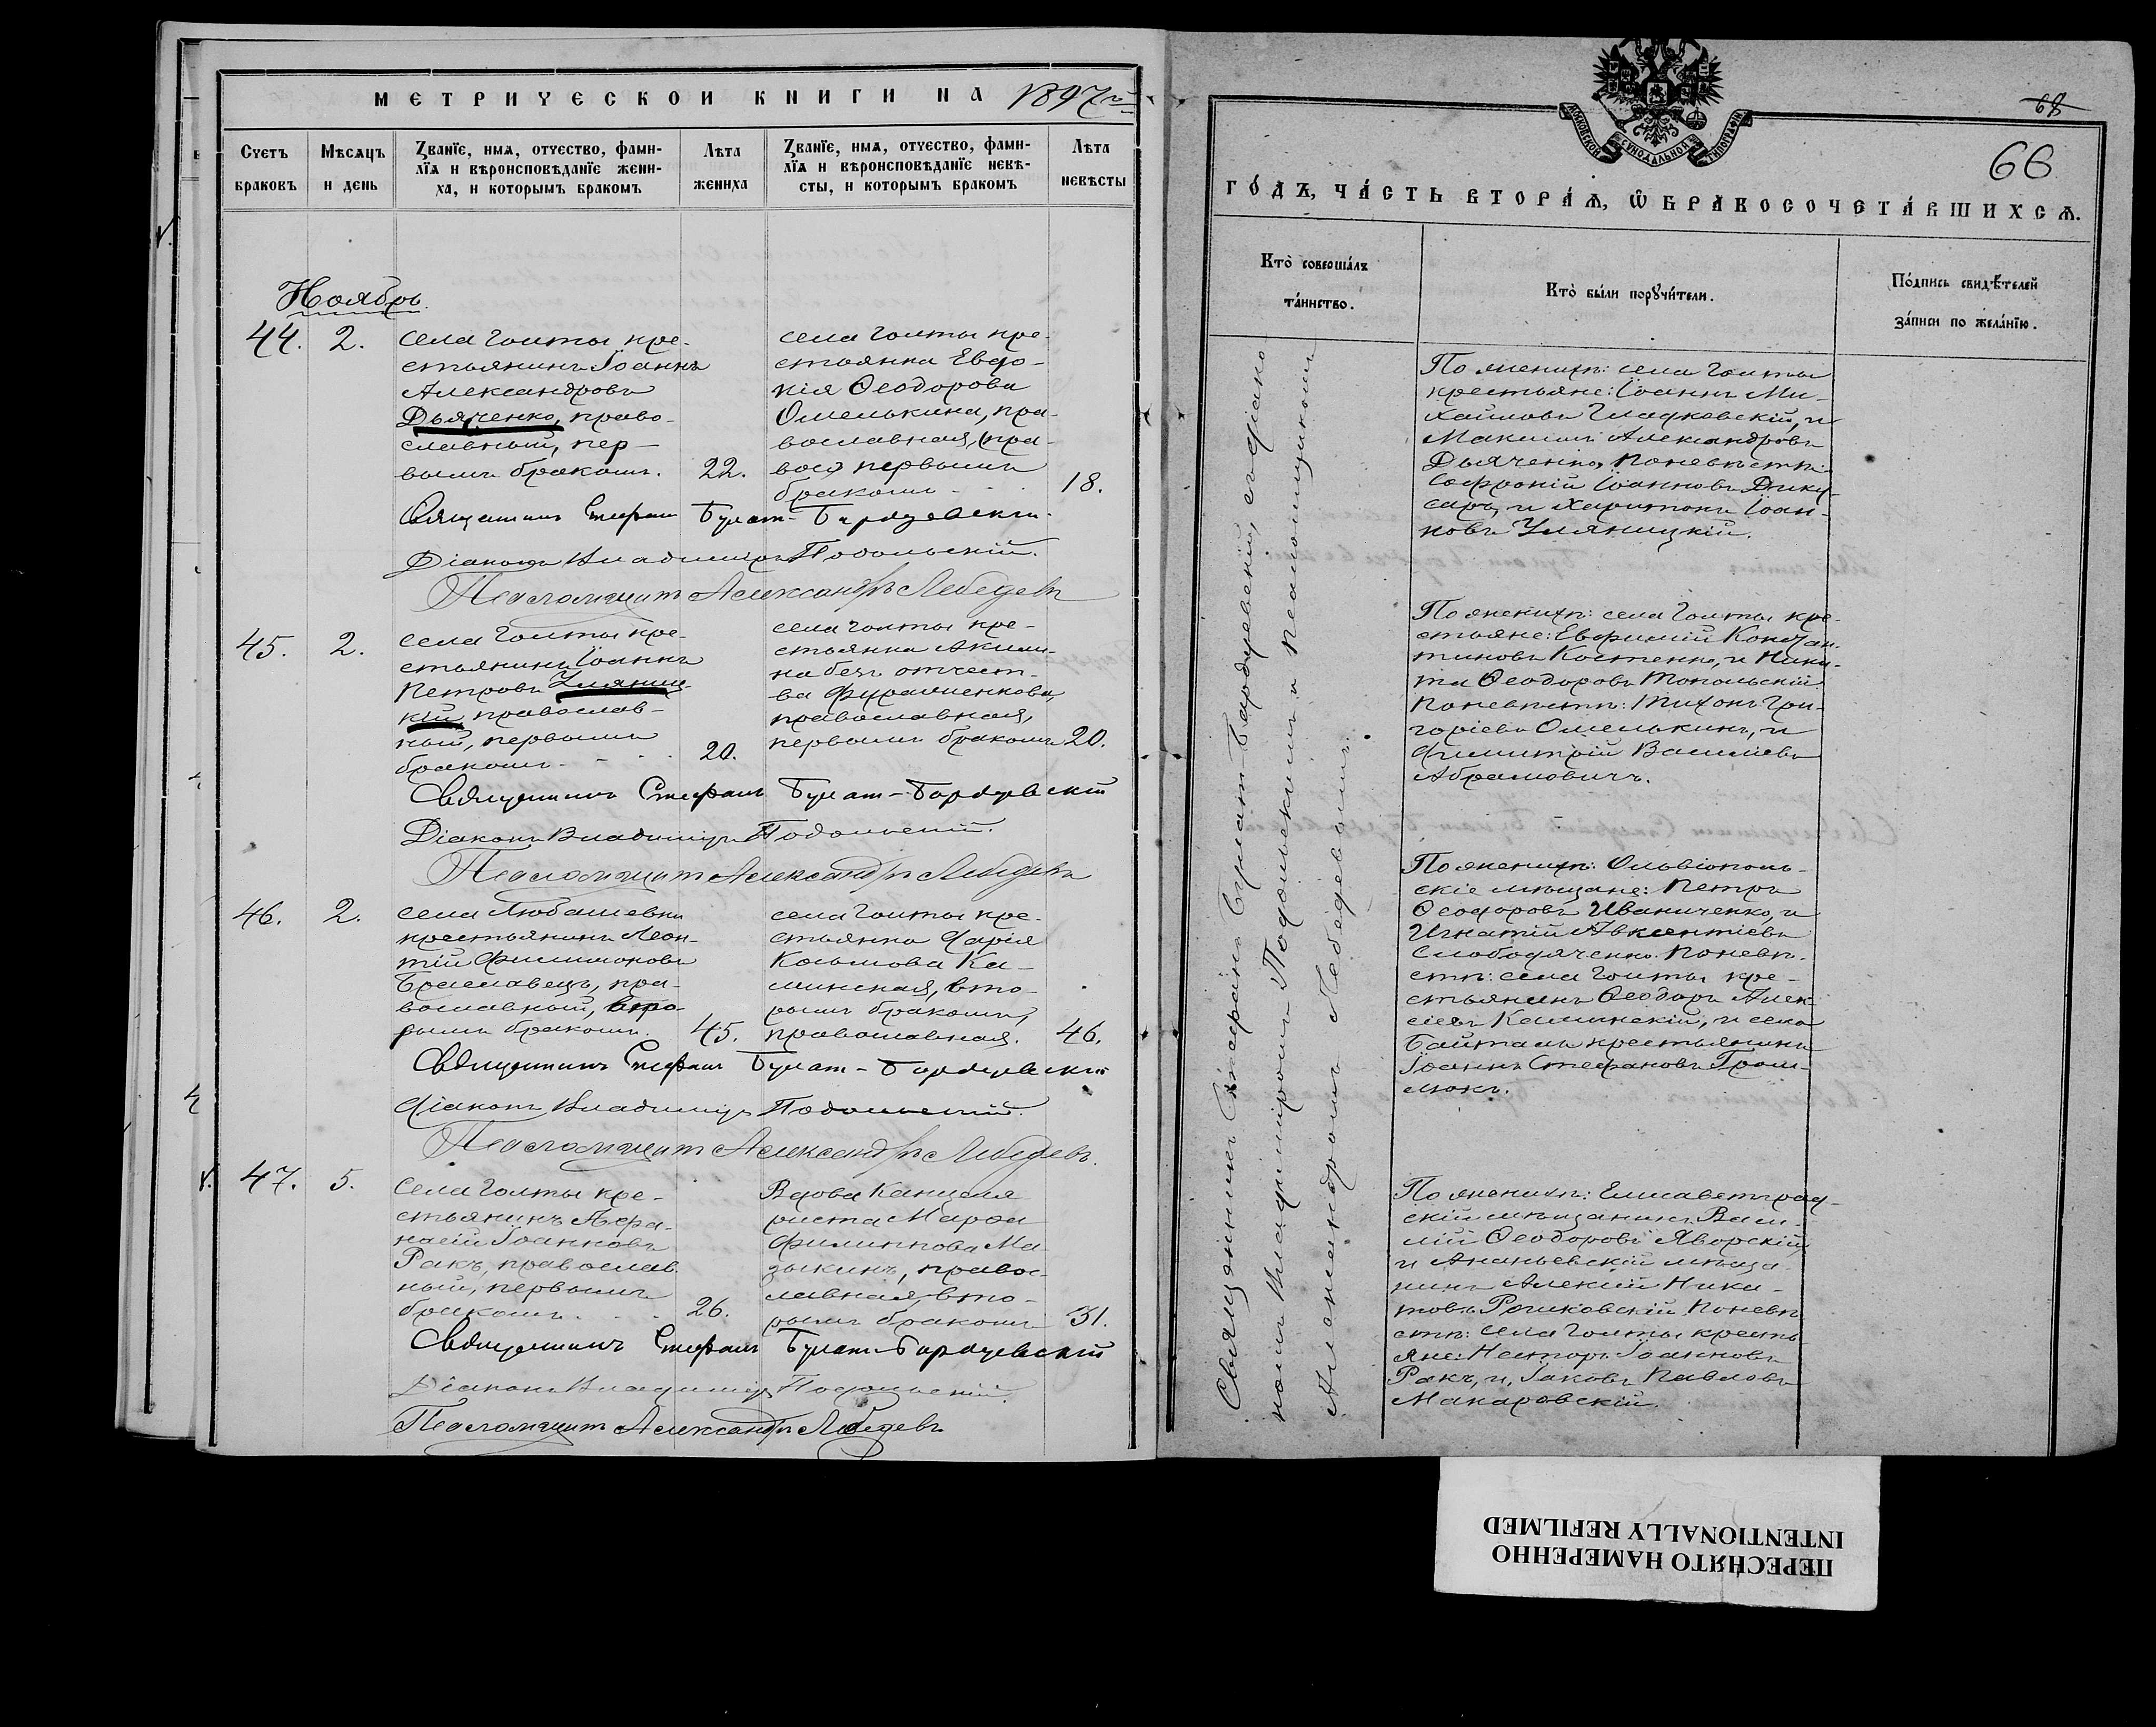 МЕТРИЧЕСКОЙ КНИГИ НА 1897 й
Счетъ браковъ
Мѣсяцъ и день
Званїе, имя, отчество, фами-
лїя и вѣроисповѣданїе жени-
ха, и которымъ бракомъ
Лѣта жениха
Званїе, имя, отчество, фами-
лїя и вѣроисповѣданїе невѣ-
сты, и которымъ бракомъ
Лѣта невѣсты
Ноябрь
44.
2.
села Голты кре-
стьянинъ Іоаннъ
Александровъ
Дьяченко, право-
славный, пер-
вымъ бракомъ.
22.
села Голты кре-
стьянка Евдо-
кія Ѳеодорова
Омелькина, пра-
вославная,
первымъ
бракомъ
18.
Священникъ Стефанъ Булат-Бардзевскій
Діаконъ Владиміръ Подольскій.
Псаломщикъ Александръ Лебедевъ
45.
2.
села Голты кре-
стьянинъ Іоаннъ
Петровъ Уляниц-
кій, православ-
ный, первымъ
бракомъ
20.
села Голты кре-
стьянка Акили-
на безъ отчест-
ва
православная,
первымъ бракомъ
20.
Священникъ Стефанъ Булат-Бардзевскій
Діаконъ Владиміръ Подольскій.
Псаломщикъ Александръ Лебедевъ
46.
2.
села Любашевки
крестьянинъ Леон-
тій Филимоновъ
Бреславецъ, пра-
вославный, вто-
рымъ бракомъ.
45.
села Голты кре-
стьянка Дарія
Косьмова Ка-
минская, вто-
рымъ бракомъ,
православная.
46.
Священникъ Стефанъ Булат-Бардзевскій
Діаконъ Владиміръ Подольскій.
Псаломщикъ Александръ Лебедевъ.
47.
5.
села Голты кре-
стьянинъ Аѳа-
насій Іоанновъ
Ракъ, православ-
ный, первымъ
бракомъ
26.
Вдова Канцеля-
риста Марѳа
Филиппова Ма-
зыкинъ, правос-
лавная, вто-
рымъ бракомъ
31.
Священникъ Стефанъ Булат-Бардзевскій
Діаконъ Владиміръ Подольскій.
Псаломщикъ Александръ Лебедевъ
МОСКОВСКОЙ СУНОДАЛЬНОЙ ТИПОГРАФІИ
68
66
ГО́ДЪ, ЧА́СТЬ ВТОРА́Я, Ѡ БРАКОСОЧЕТА́ВШИХСЯ.
Кто̀ соверша́лъ
та́инство.
Кто̀ бы́ли поручи́тели.
По́дпись свидѣ́телей
за́писи по жела́нїю.
Священникъ Стефанъ Булат-Бардзевскій, съ діако-
номъ Владиміромъ Подольскимъ и псаломщикомъ
Александромъ Лебедевымъ.
По женихѣ: села Голты
крестьяне: Іоаннъ Ми-
хаиловъ Гладковскій, и
Максимъ Александровъ
Дьяченко, по невѣстѣ:
Софроній Іоанновъ Дику-
саръ, и Харитонъ Іоан-
новъ Уляницкій.
По женихѣ: села Голты кре-
стьяне: Евфимій Констан-
тиновъ Костенко, и Ники-
та Ѳеодоровъ Топольскій.
По невѣстѣ: Тихонъ Гри-
горіевъ Омелькинъ, и
Димитрій Василіевъ
Абрамовичъ.
По женихѣ: Ольвіополь-
скіе мѣщане: Петръ
Ѳеодоровъ Иваниченко, и
Игнатій Авксентіевъ
Слободяченко. По невѣ-
стѣ: села Голты кре-
стьянинъ Ѳеодоръ Алек-
сіевъ Каминскій, и села
Байталъ крестьянинъ
Іоаннъ Стефановъ
По женихѣ: Елисаветград-
скій мѣщанинъ Васи-
лій Ѳеодоровъ Яворскій
и Ананьевскій мѣща-
нинъ Алексій Ники-
товъ по невѣ-
стѣ: села Голты кресть-
яне: Несторъ Іоанновъ
Ракъ, и, Іаковъ Павловъ
Макаровскій.
ПЕРЕСНЯТО НАМЕРЕННО
INTENTIONALLY REFILMED